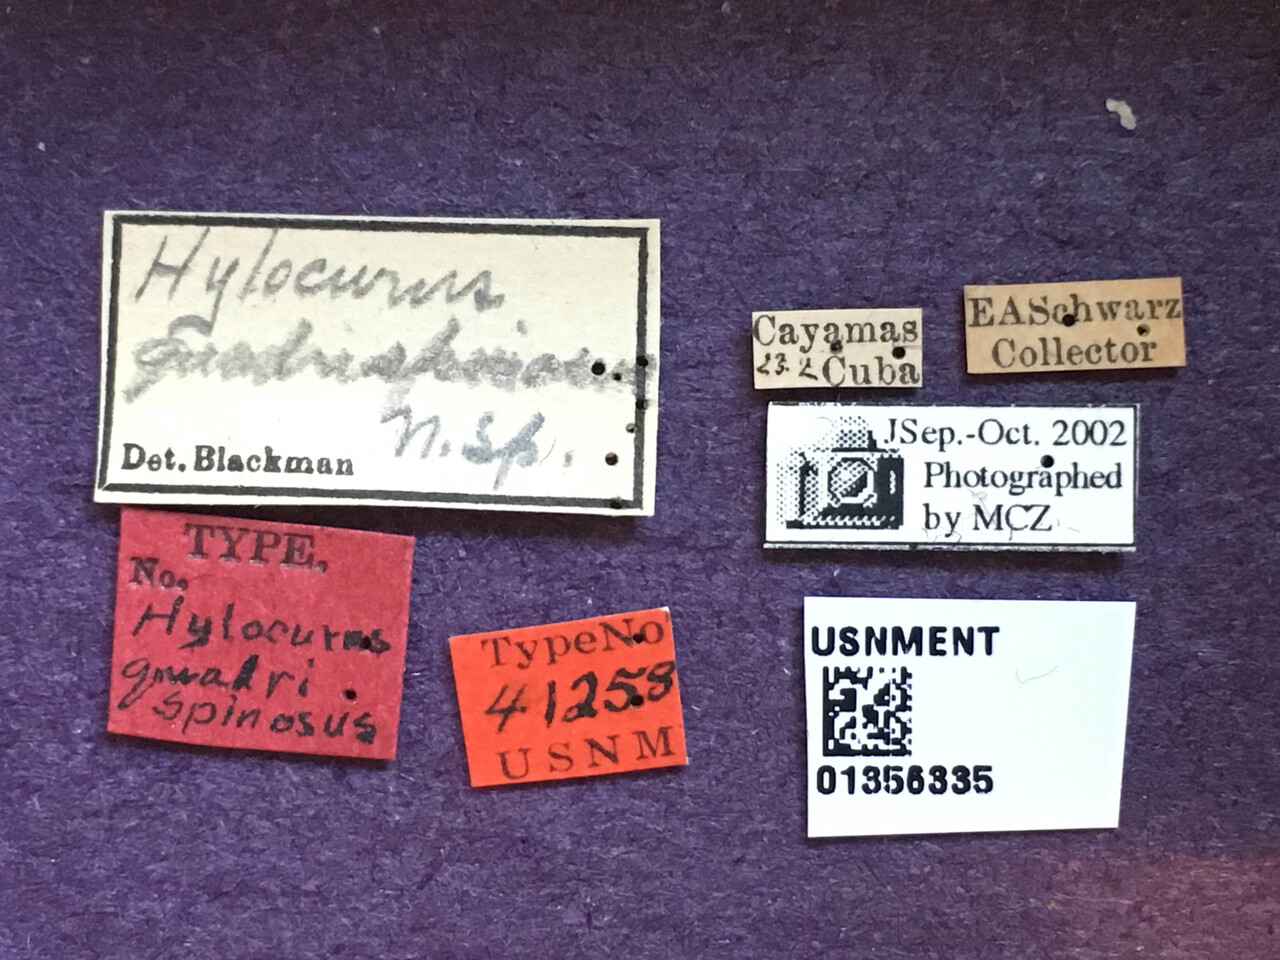 Hylocurus
quadrispinosus
n. sp.
Det. Blackman
TYPE.
No.
Hylocurus
quadri
spinosus
TypeNo
41258
USNM
Cayamas
23.2 Cuba
EASchwarz
Collector
JSep.-Oct. 2002
Photographed
by MCZ
USNMENT
01356335